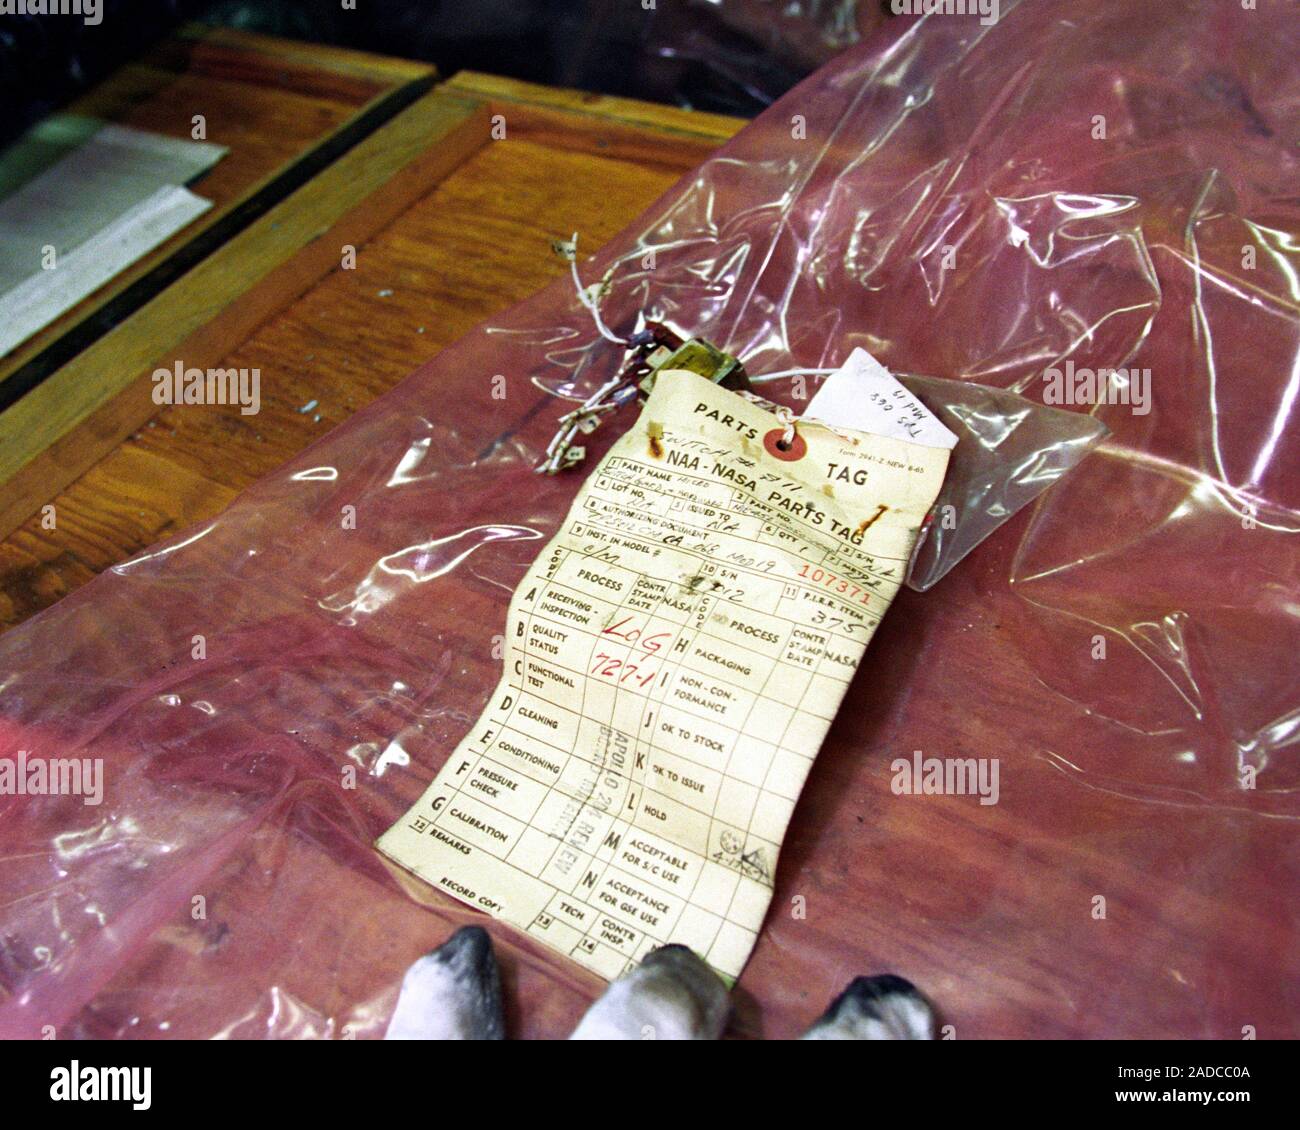 TPS 066
Mod 19
PARTS TAG
Form 2941-Z-NEW 8-65
SWITCH
NAA-NASA PARTS TAG
1 PART NAME MICRO
2 PART NO.
3 S/N NA
4 LOT NO. NA
5 ISSUED TO NA
6 QTY 1
8 AUTHORIZING DOCUMENT
068 MOD 19
107371
9 INST. IN MODEL # C/M
10 S/N 012
11 P.I.R.R. ITEM # 375
CODE PROCESS CONTR STAMP DATE NASA CODE PROCESS CONTR STAMP DATE NASA
A RECEIVING-INSPECTION
B QUALITY STATUS
C FUNCTIONAL TEST
D CLEANING
E CONDITIONING
F PRESSURE CHECK
G CALIBRATION
LOG
727-1
H PACKAGING
I NON-CONFORMANCE
J OK TO STOCK
K OK TO ISSUE
L HOLD
M ACCEPTABLE FOR S/C USE
N ACCEPTANCE FOR GSE USE
APOLLO 204 REVIEW
BOARD MATERIAL
12 REMARKS
RECORD COPY
13 TECH
14 CONTR INSP.
a alamy
Image ID: 2ADCC0A
www.alamy.com